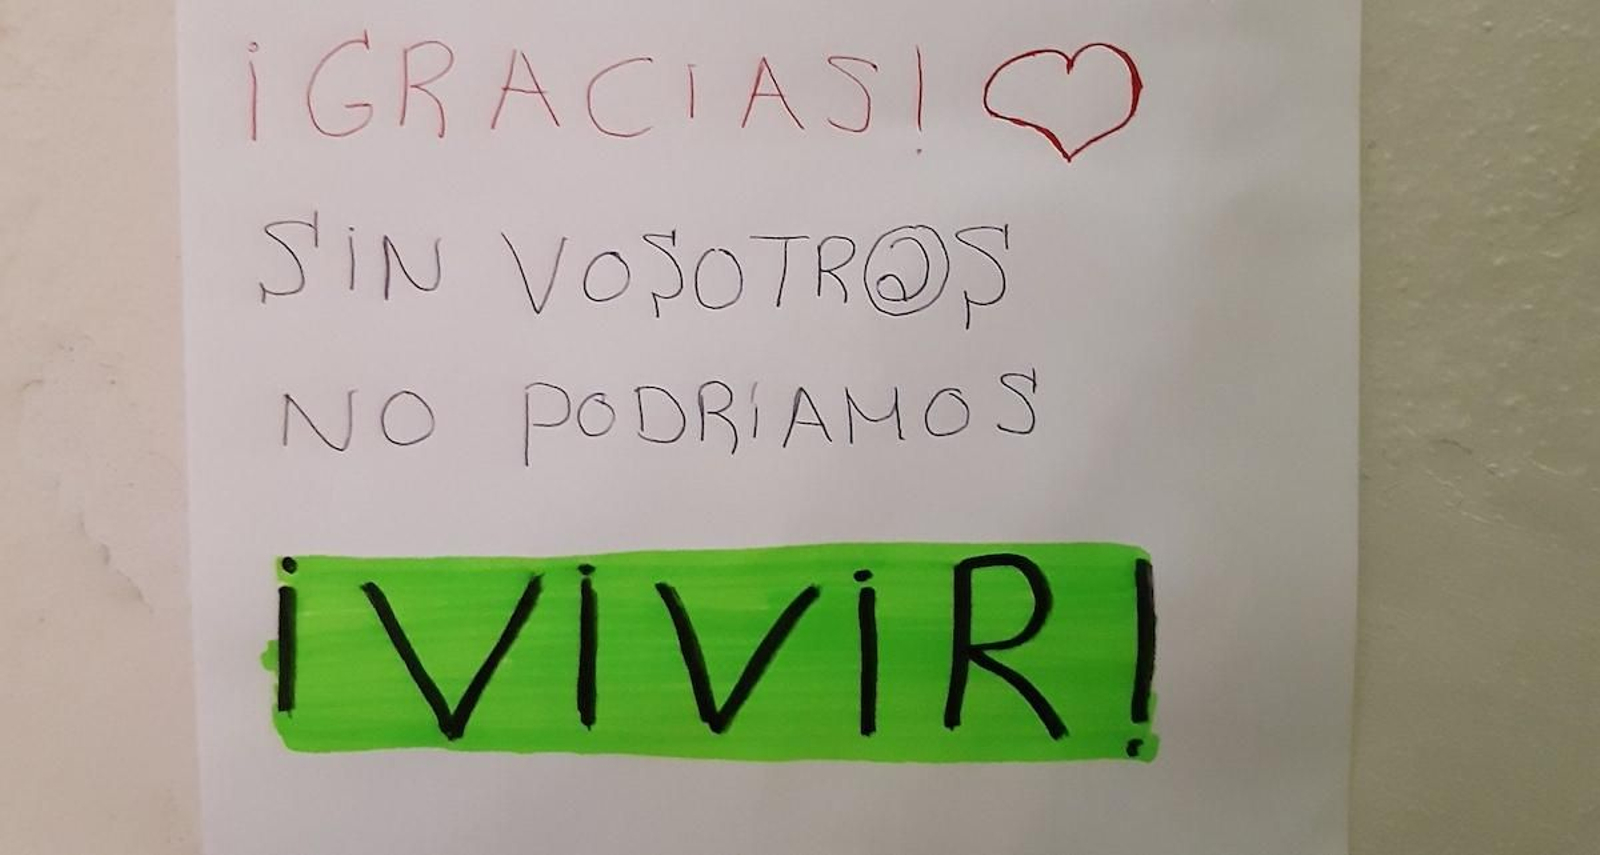 ¡GRACIAS! ♡
SIN VOSOTR@S
NO PODRÍAMOS
¡VIVIR!